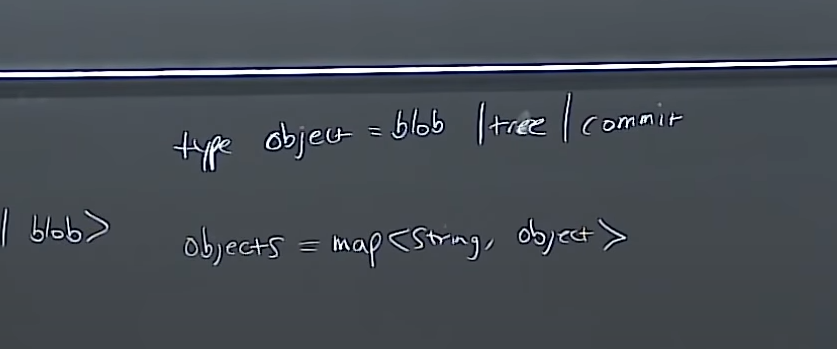 type object = blob | tree | commit
| blob>
objects = map<string, object>